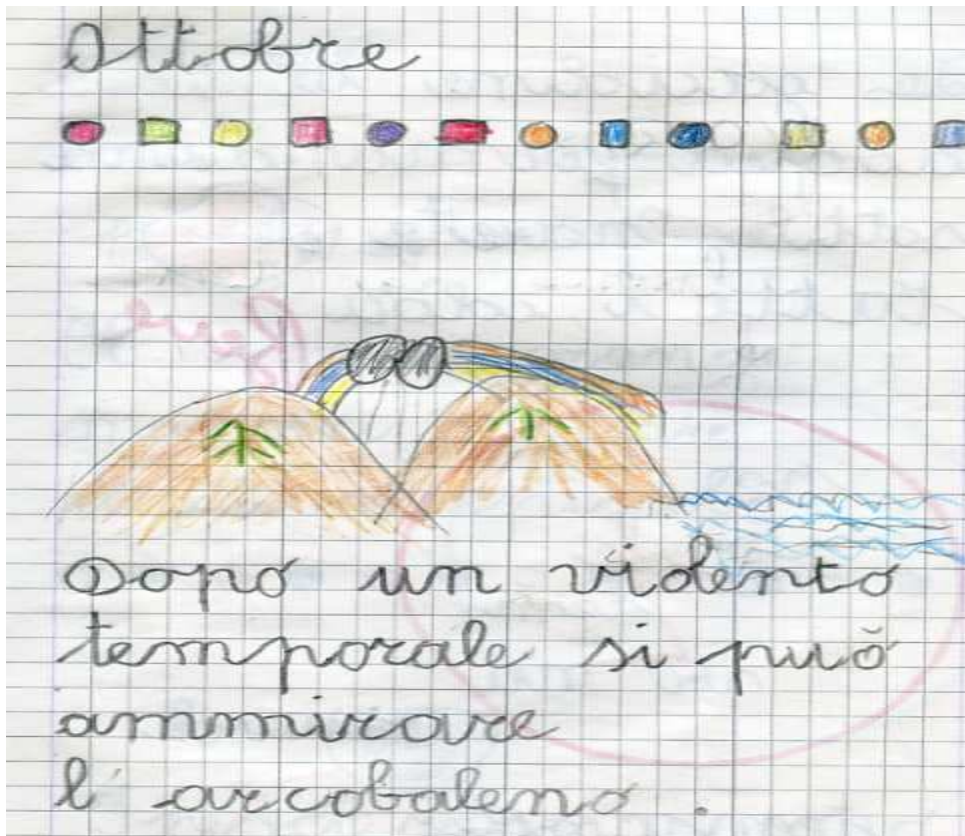 Ottobre
Dopo un violento
temporale si può
ammirare
l'arcobaleno.